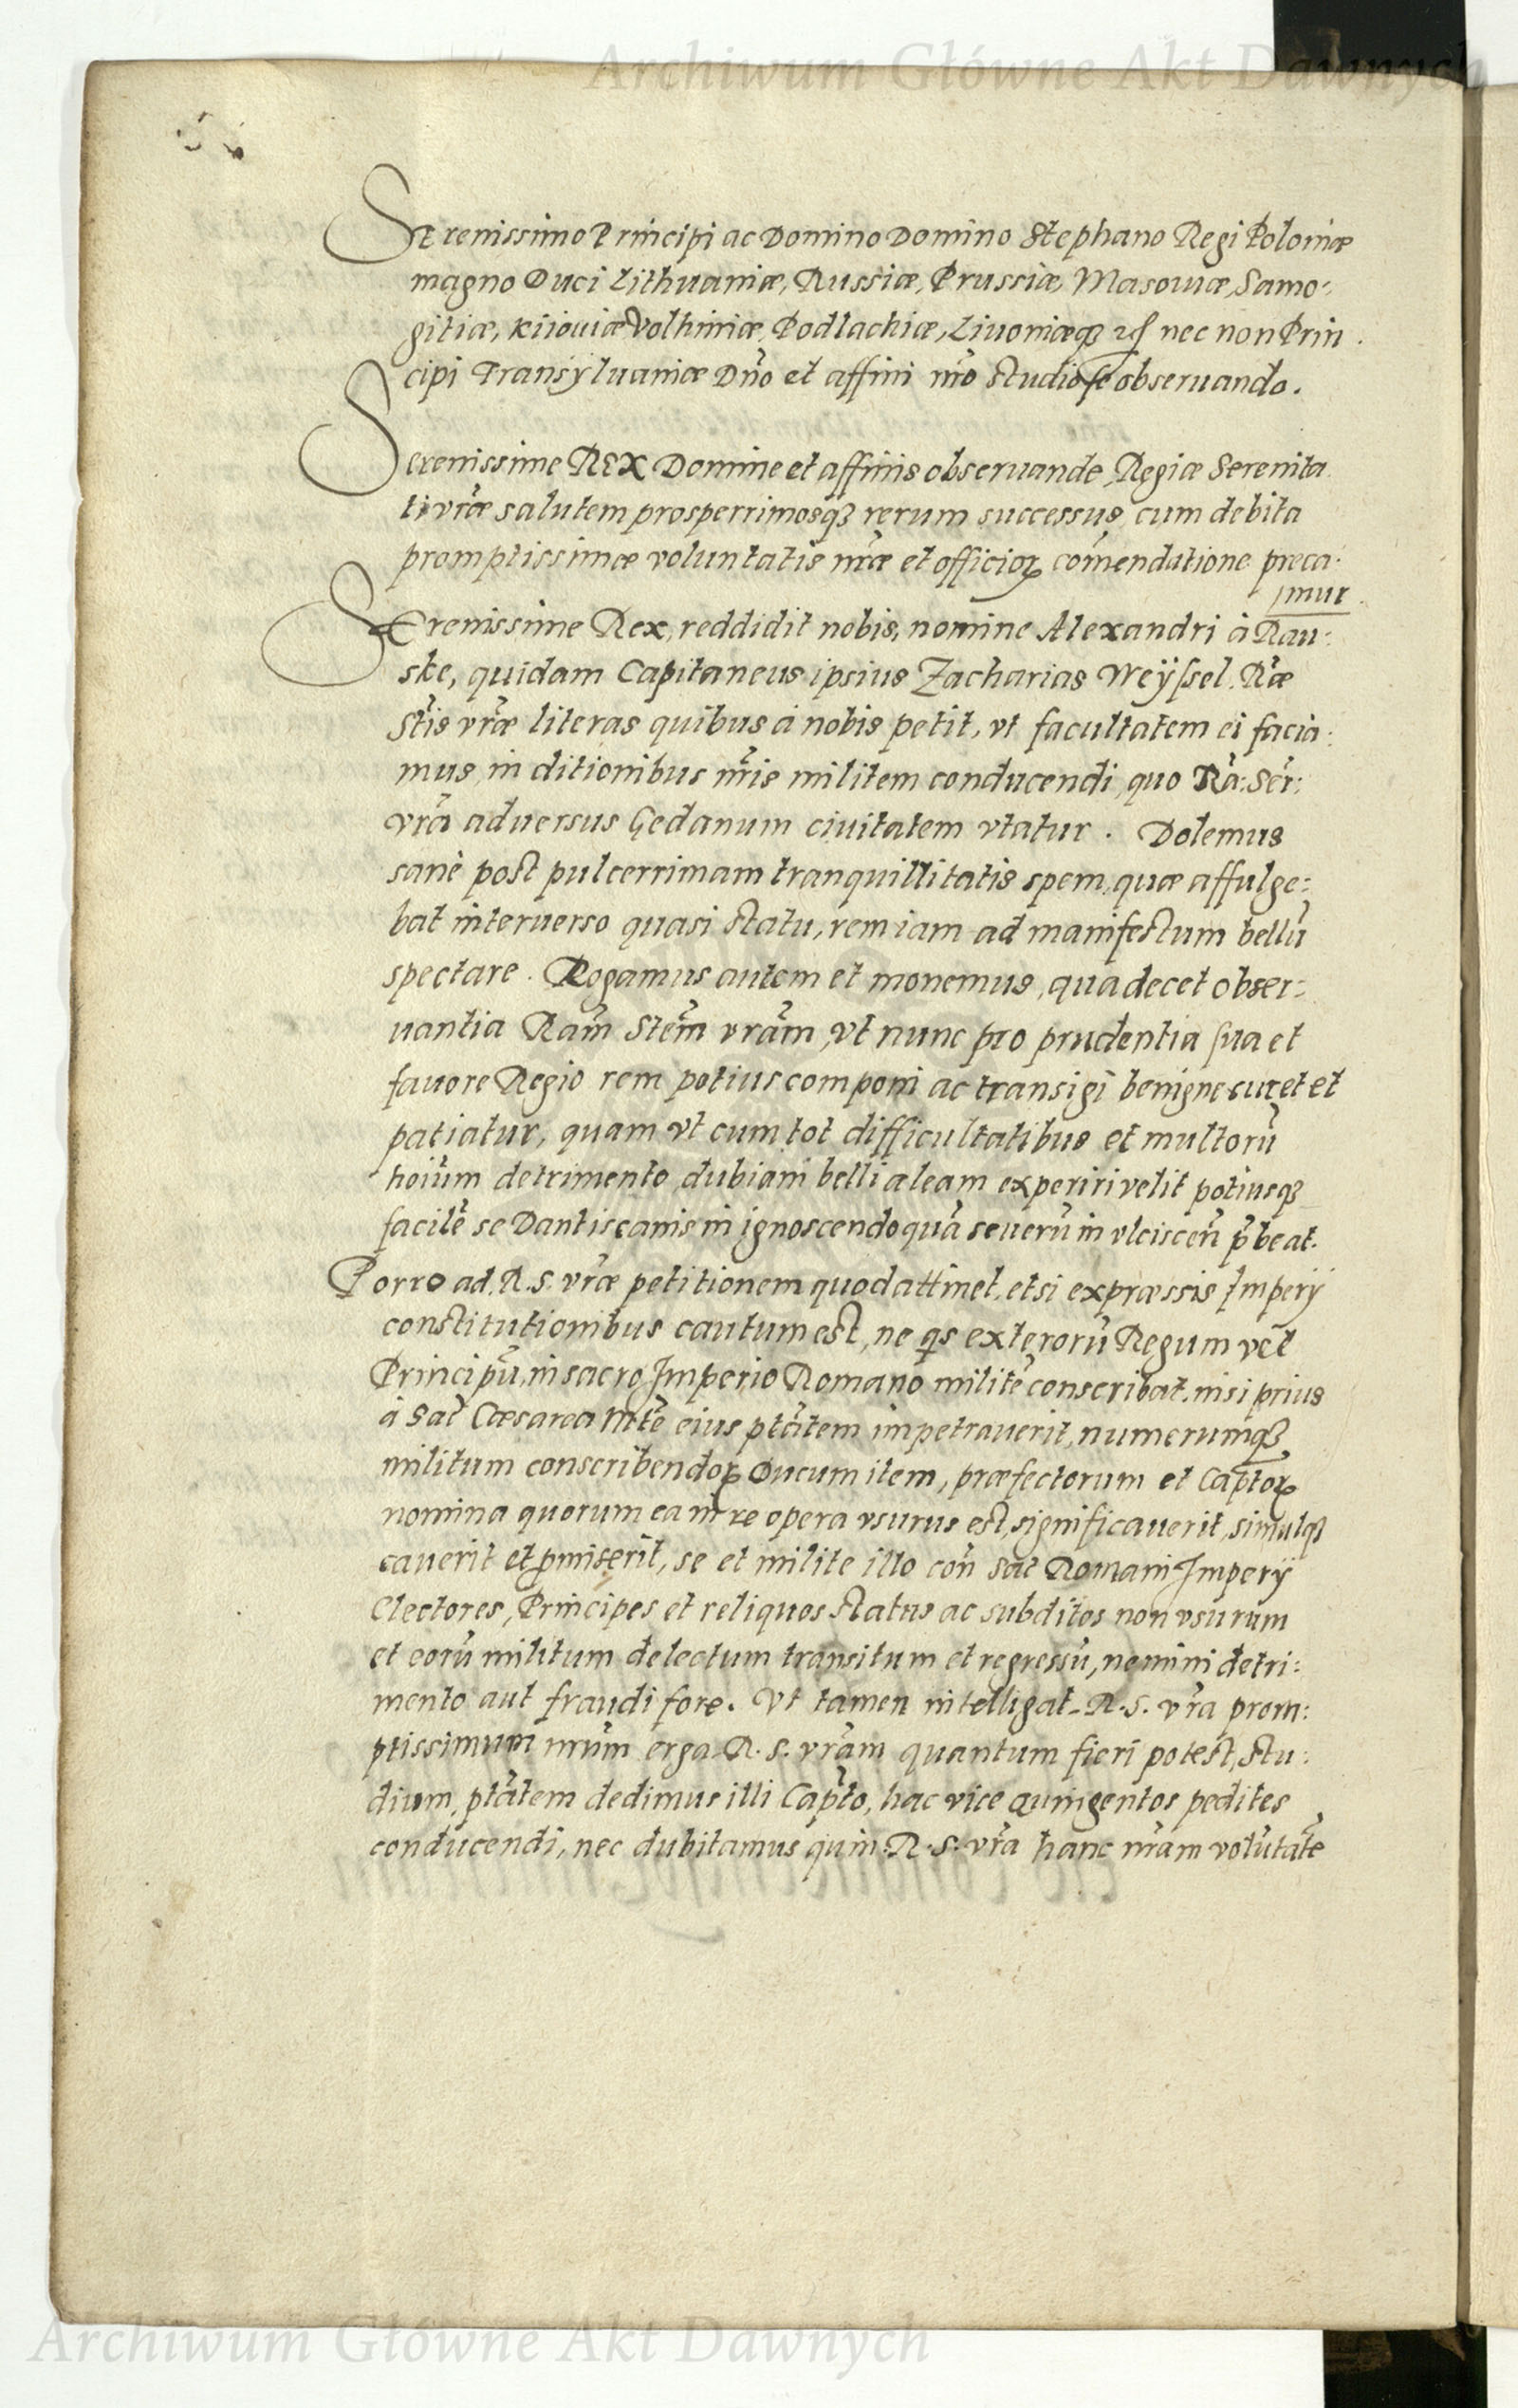 Archiwum Główne Akt Dawnych
Serenissimo Principi ac Domino Domino Stephano Regi Poloniæ
magno Duci Lithuaniæ, Russiæ, Prussiæ, Masouiæ, Samo-
gitiæ, Kiiouiæ Volhiniæ, Podlachiæ, Liuoniæq₃ nec non Prin
cipi Transÿluaniæ Dño et affini nr̃o studiose obseruando.
Serenissime REX Domine et affinis obseruande, Regiæ Serenita
ti vr̃æ salutem prosperrimosq₃ rerum successus, cum debita
promptissimæ voluntatis nr̃æ et officioꝝ com̃endatione preca-
mur
SErenissime Rex, reddidit nobis, nomine Alexandri à Rau:
ske, quidam Capitaneus ipsius Zacharias Weÿssel. Ræ̃
Str̃is vr̃æ literas quibus à nobis petit, vt facultatem ei facia:
mus in ditionibus nr̃is militem conducendi, quo Rã: Ser̃:
vr̃a aduersus Gedanum ciuitatem vtatur. Dolemus
sanè post pulcerrimam tranquillitatis spem, quæ affulge:
bat interuerso quasi statu, rem iam ad manifestum bellũ
spectare. Rogamus autem et monemus, qua decet obser:
uantia Ram̃ Stem̃ vr̃am, vt nunc pro prudentia sua et
fauore Regio rem potius componi ac transigi benigne curet et
patiatur, quam vt cum tot difficultatibus et multorũ
hoiũm detrimento dubiam belli aleam experiri velit potiusq₃
facilẽ se Dantiscanis in ignoscendo quã seuerũ in vlciscen̄ p̃beat.
Porro ad. R. S. vr̃æ petitionem quod attinet, etsi expræssis Imperij
constitutionibus cautum est, ne qs exterorũ Regum vel
Principũ, in sacro Imperio Romano militẽ conscribat, nisi prius
à Sac̃ Cæsarea Mtẽ eius ptãtem impetrauerit, numerumq₃
militum conscribendoꝝ Ducum item, præfectorum et Capt̃oꝝ
nomina quorum ea in re opera vsurus est, significauerit, simulq₃
cauerit et p̱miserit, se et milite illo con̄ Sac̃ Romani Imperÿ
Electores, Principes et reliquos status ac subditos non vsurum
et eorũ militum delectum transitum et regressũ, nemini detri:
mento aut fraudi fore. Vt tamen intelligat R. S. vr̃a prom:
ptissimum nr̃um erga R. S. vr̃am quantum fieri potest, stu:
dium, ptãtem dedimus illi Capt̃o, hac vice quingentos pedites
conducendi, nec dubitamus quin R. S. vr̃a hanc nr̃am volũtatẽ
Archiwum Główne Akt Dawnych